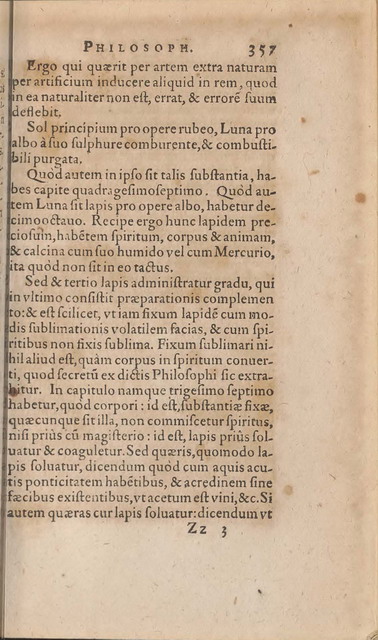 PHILOSOPH. 357
Ergo qui quærit per artem extra naturam
per artificium inducere aliquid in rem, quod
in ea naturaliter non est, errat, & errorē suum
deflebit.
Sol principium pro opere rubeo, Luna pro
albo à suo sulphure comburente, & combusti-
bili purgata.
Quod autem in ipso sit talis substantia, ha-
bes capite quadragesimoseptimo. Quòd au-
tem Luna sit lapis pro opere albo, habetur de-
cimooctauo. Recipe ergo hunc lapidem pre-
ciosum, habētem spiritum, corpus & animam,
& calcina cum suo humido vel cum Mercurio,
ita quòd non sit in eo tactus.
Sed & tertio lapis administratur gradu, qui
in vltimo consistit præparationis complemen
to: & est scilicet, vt iam fixum lapidē cum mo-
dis sublimationis volatilem facias, & cum spi-
ritibus non fixis sublima. Fixum sublimari ni-
hil aliud est, quàm corpus in spiritum conuer-
ti, quod secretū ex dictis Philosophi sic extra-
hitur. In capitulo namque trigesimo septimo
habetur, quod corpori: id est, substantiæ fixæ,
quæcunque sit illa, non commiscetur spiritus,
nisi priùs cū magisterio: id est, lapis priùs sol-
uatur & coaguletur. Sed quæris, quomodo la-
pis soluatur, dicendum quòd cum aquis acu-
tis ponticitatem habētibus, & acredinem sine
fæcibus existentibus, vt acetum est vini, &c. Si
autem quæras cur lapis soluatur: dicendum vt
Zz 3